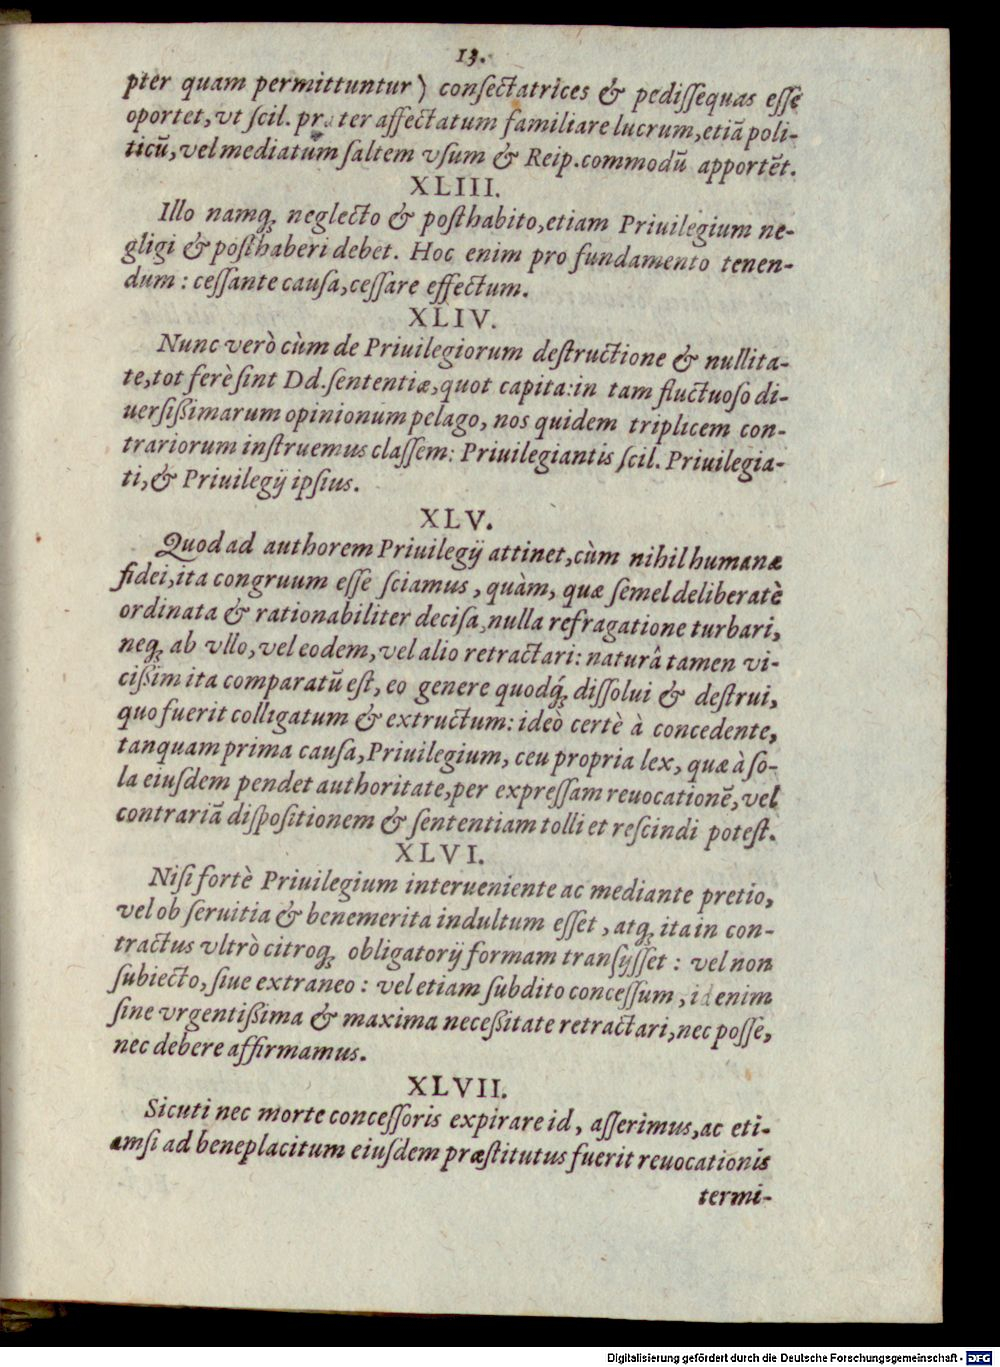 13.
pter quam permittuntur) conſectatrices & pediſſequas eſſe
oportet, vt ſcil. præter affectatum familiare lucrum, etiã poli-
ticũ, vel mediatum ſaltem vſum & Reip. commodũ apportẽt.
XLIII.
Illo namq; neglecto & poſthabito, etiam Priuilegium ne-
gligi & poſthaberi debet. Hoc enim pro fundamento tenen-
dum: ceſſante cauſa, ceſſare effectum.
XLIV.
Nunc verò cùm de Priuilegiorum deſtructione & nullita-
te, tot ferè ſint Dd. ſententiæ, quot capita: in tam fluctuoſo di-
uerſißimarum opinionum pelago, nos quidem triplicem con-
trariorum inſtruemus claſſem: Priuilegiantis ſcil. Priuilegia-
ti, & Priuilegij ipſius.
XLV.
Quod ad authorem Priuilegij attinet, cùm nihil humanæ
fidei, ita congruum eſſe ſciamus, quàm, quæ ſemel deliberatè
ordinata & rationabiliter deciſa, nulla refragatione turbari,
neq; ab vllo, vel eodem, vel alio retractari: naturâ tamen vi-
cißim ita comparatũ eſt, eo genere quodq́; diſſolui & deſtrui,
quo fuerit colligatum & extructum: ideò certè à concedente,
tanquam prima cauſa, Priuilegium, ceu propria lex, quæ à ſo-
la eiuſdem pendet authoritate, per expreſſam reuocationẽ, vel
contrariã diſpoſitionem & ſententiam tolli et reſcindi poteſt.
XLVI.
Niſi fortè Priuilegium interueniente ac mediante pretio,
vel ob ſeruitia & benemerita indultum eſſet, atq; ita in con-
tractus vltrò citroq; obligatorij formam tranſijſſet: vel non
ſubiecto, ſiue extraneo: vel etiam ſubdito conceſſum, id enim
ſine vrgentißima & maxima neceßitate retractari, nec poſſe,
nec debere affirmamus.
XLVII.
Sicuti nec morte conceſſoris expirare id, aſſerimus, ac eti-
amſi ad beneplacitum eiuſdem præſtitutus fuerit reuocationis
termi-
Digitalisierung gefördert durch die Deutsche Forschungsgemeinschaft - DFG